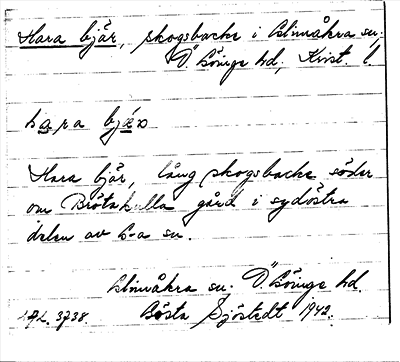 Hara bjär, skogsbacke i Glimåkra sn.
Ö. Göinge hd, Krist. l.
hara bjær
Hara bjär, lång skogsbacke söder
om Brötahulla gård i sydöstra
delen av G-a sn.
Glimåkra sn. Ö. Göinge hd.
3738. Gösta Sjöstedt 1942.